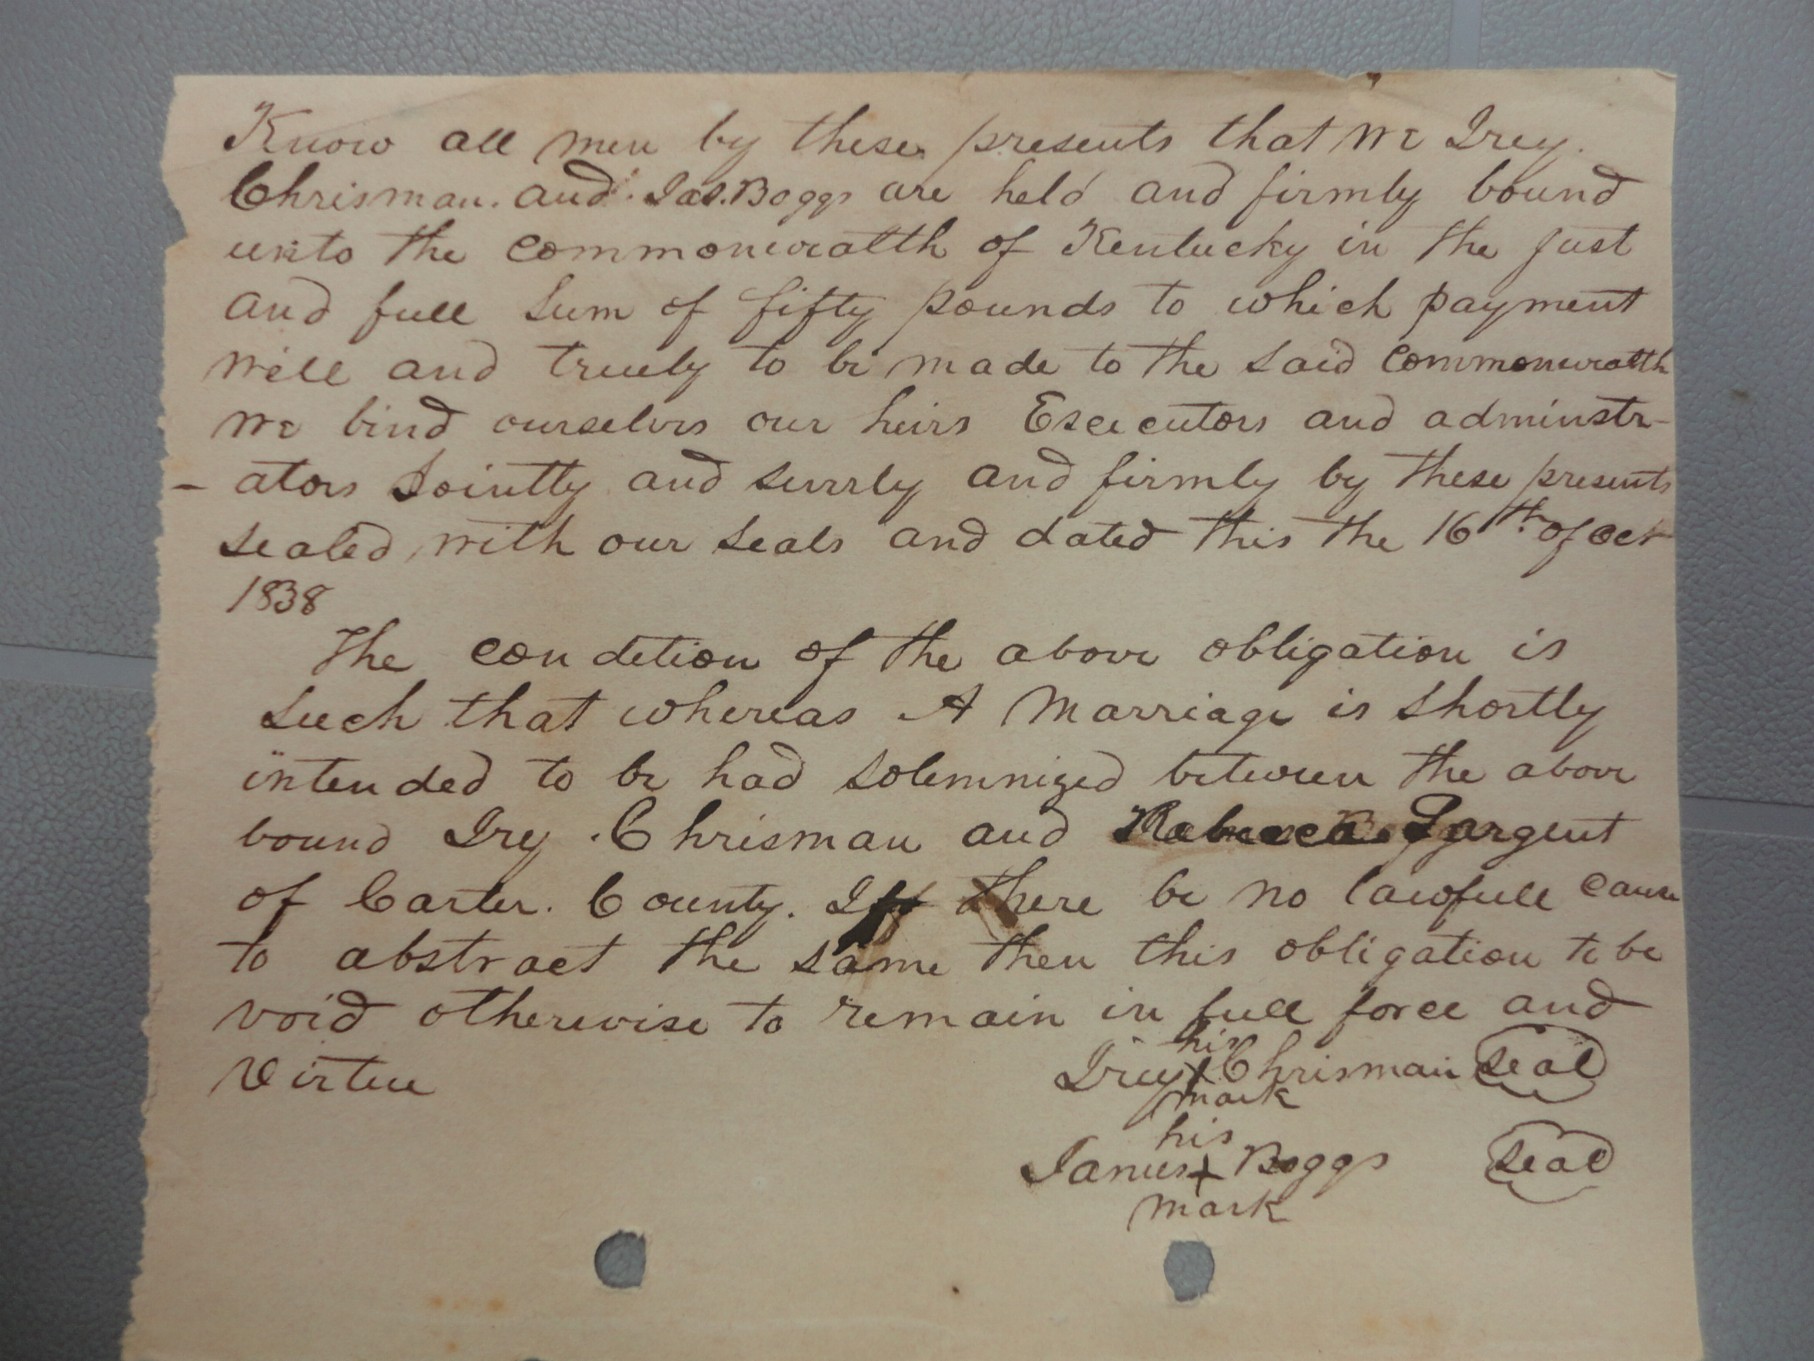 Know all men by these presents that we Irey
Chrisman and Jas. Boggs are held and firmly bound
unto the commonwealth of Kentucky in the just
and full sum of fifty pounds to which payment
well and truely to be made to the said commonwealth
we bind ourselves our heirs Executors and adminstr-
-ators Jointly and severly and firmly by these presents
sealed with our seals and dated this the 16th of Oct
1838
The condetion of the above obligation is
such that whereas A Marriage is shortly
intended to be had solemnized between the above
bound Irey Chrisman and Rebecca Sargent
of Carter County. If there be no lawfull cause
to abstract the same then this obligation to be
void otherwise to remain in full force and
virtue
his
Irey X Chrisman seal
mark
his
James + Boggs seal
mark